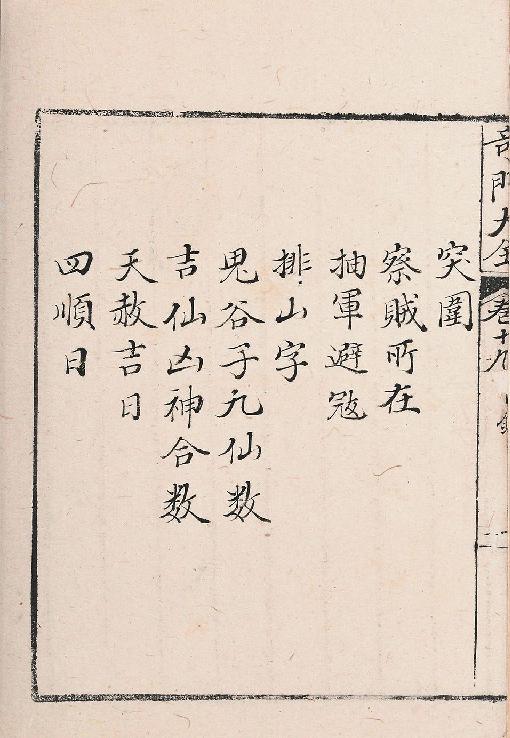 奇門大全
卷十九 目錄
二
突圍
察賊所在
抽軍避寇
排山字
鬼谷子九仙数
吉仙凶神合数
天赦吉日
四順日